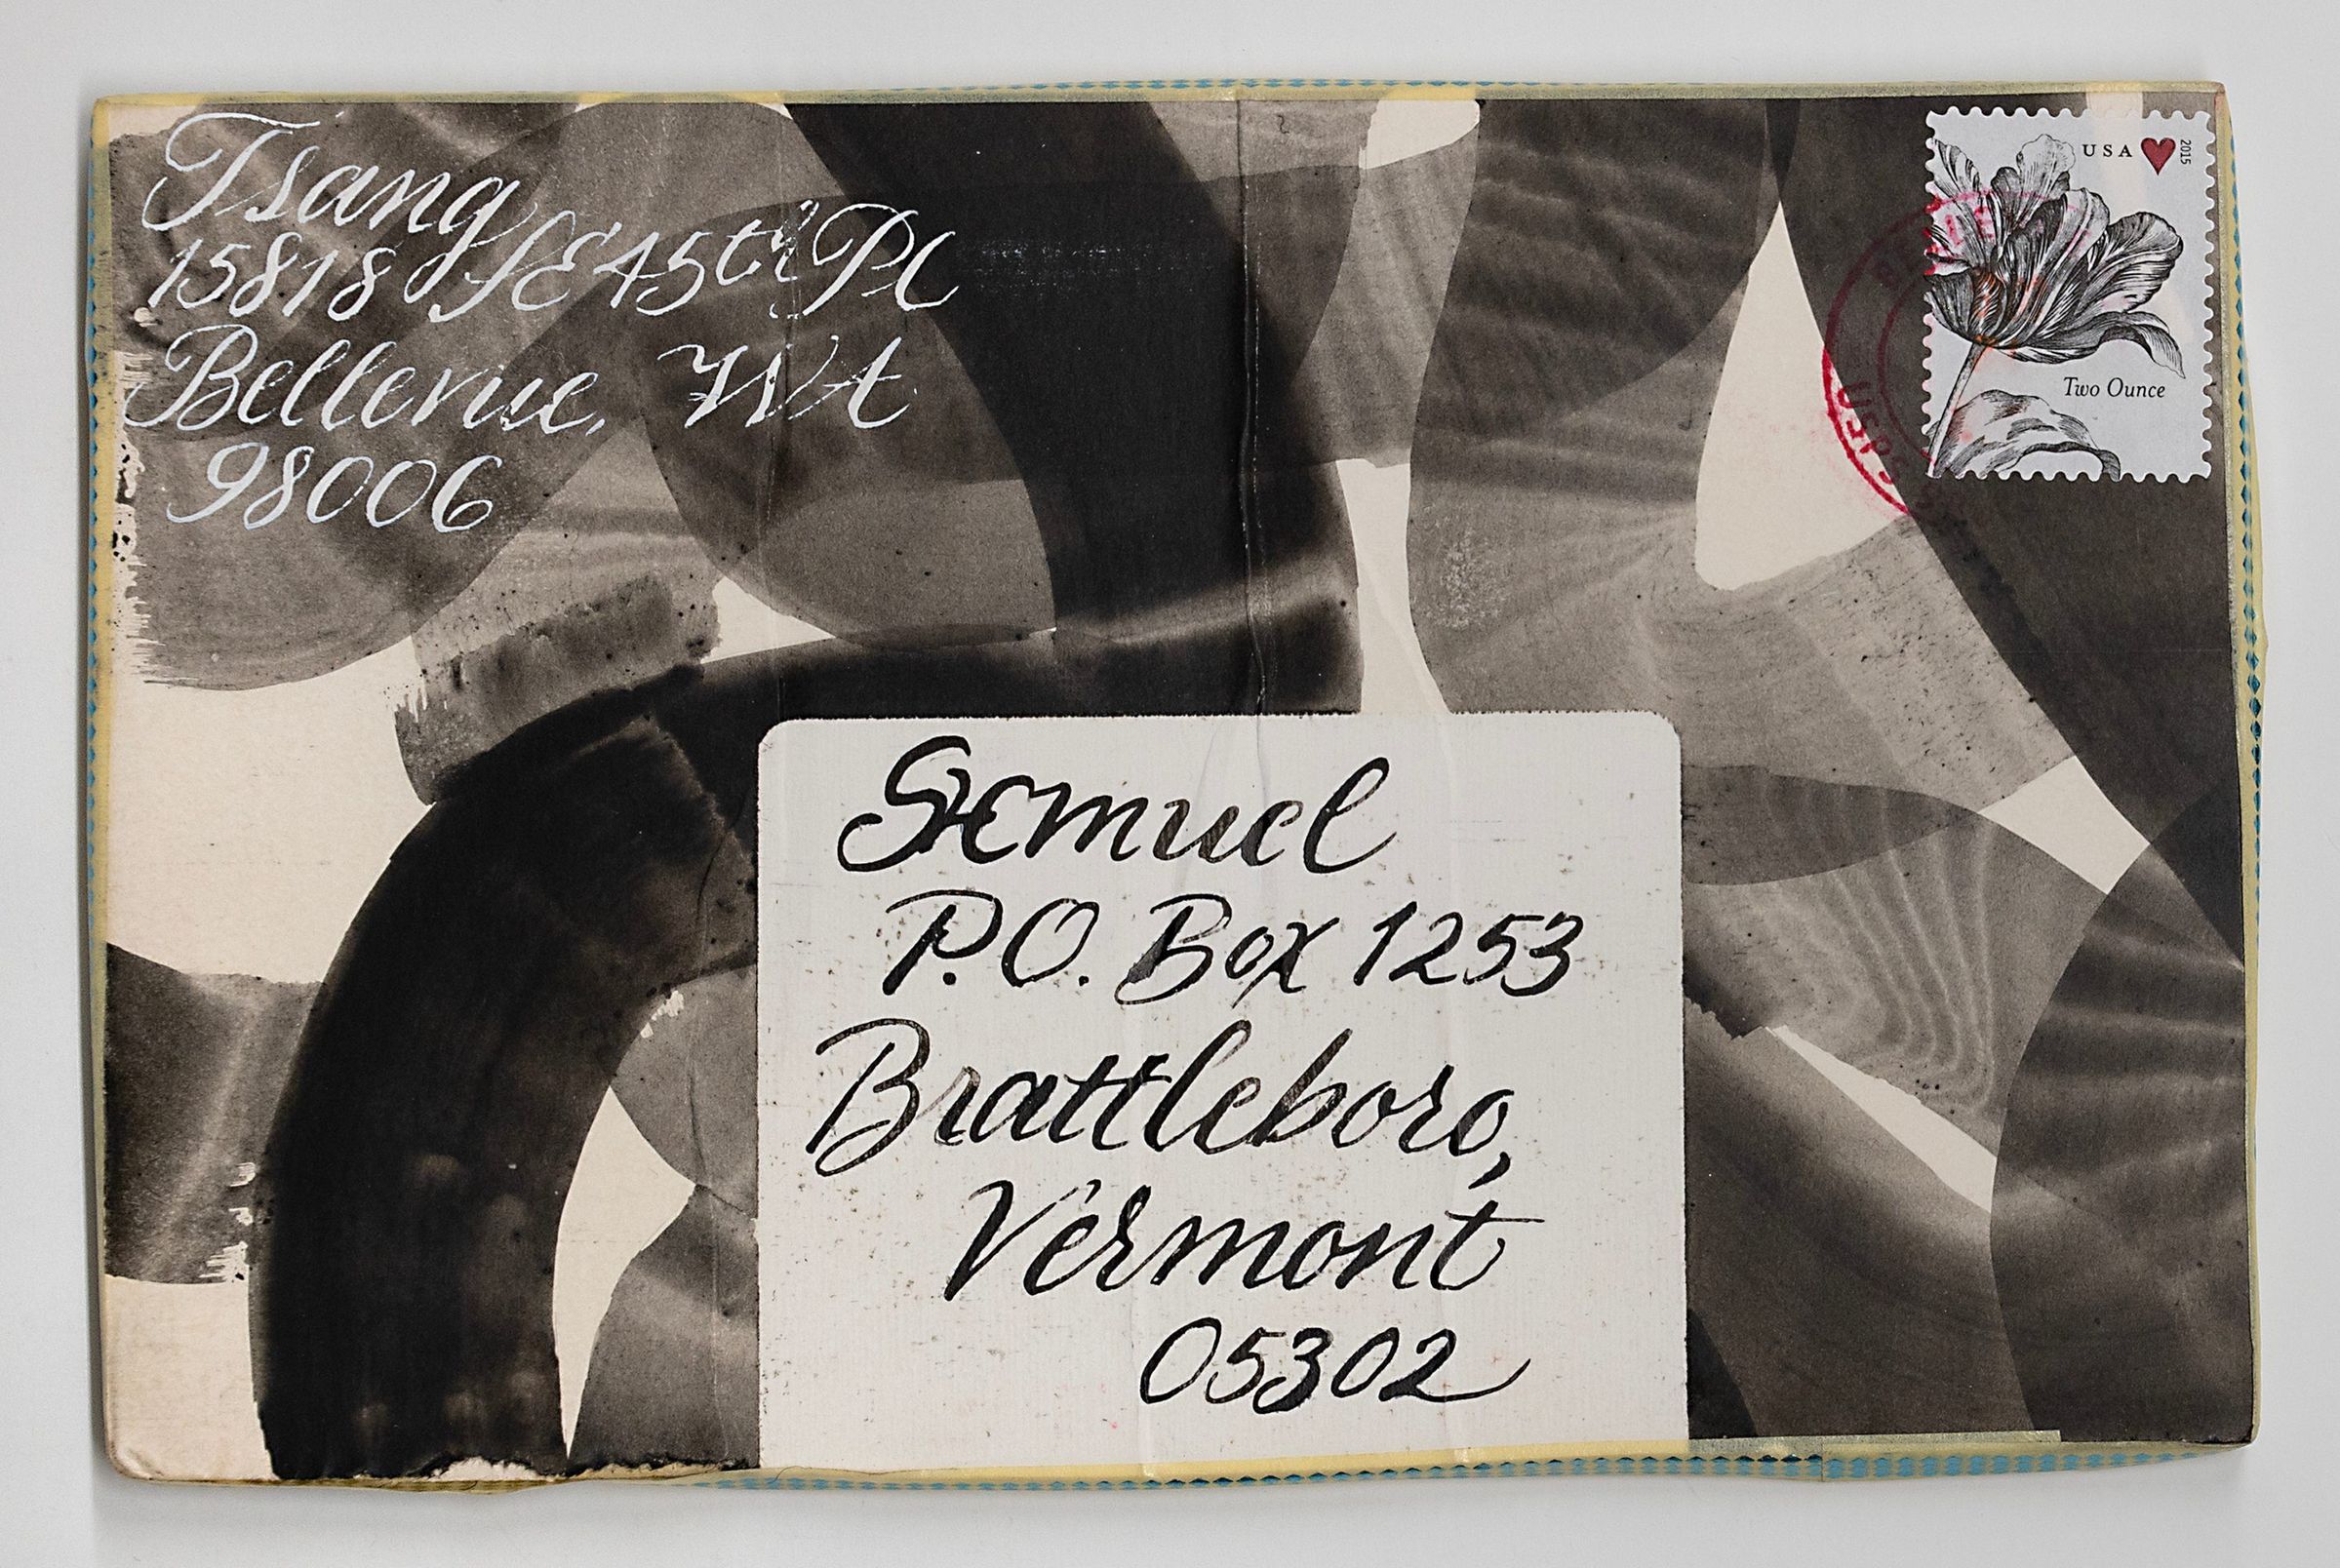 Tsang
15818 SE 45th Pl
Bellevue, WA
98006
USA 2015
Two Ounce
Semuel
P.O. Box 1253
Brattleboro,
Vermont
05302